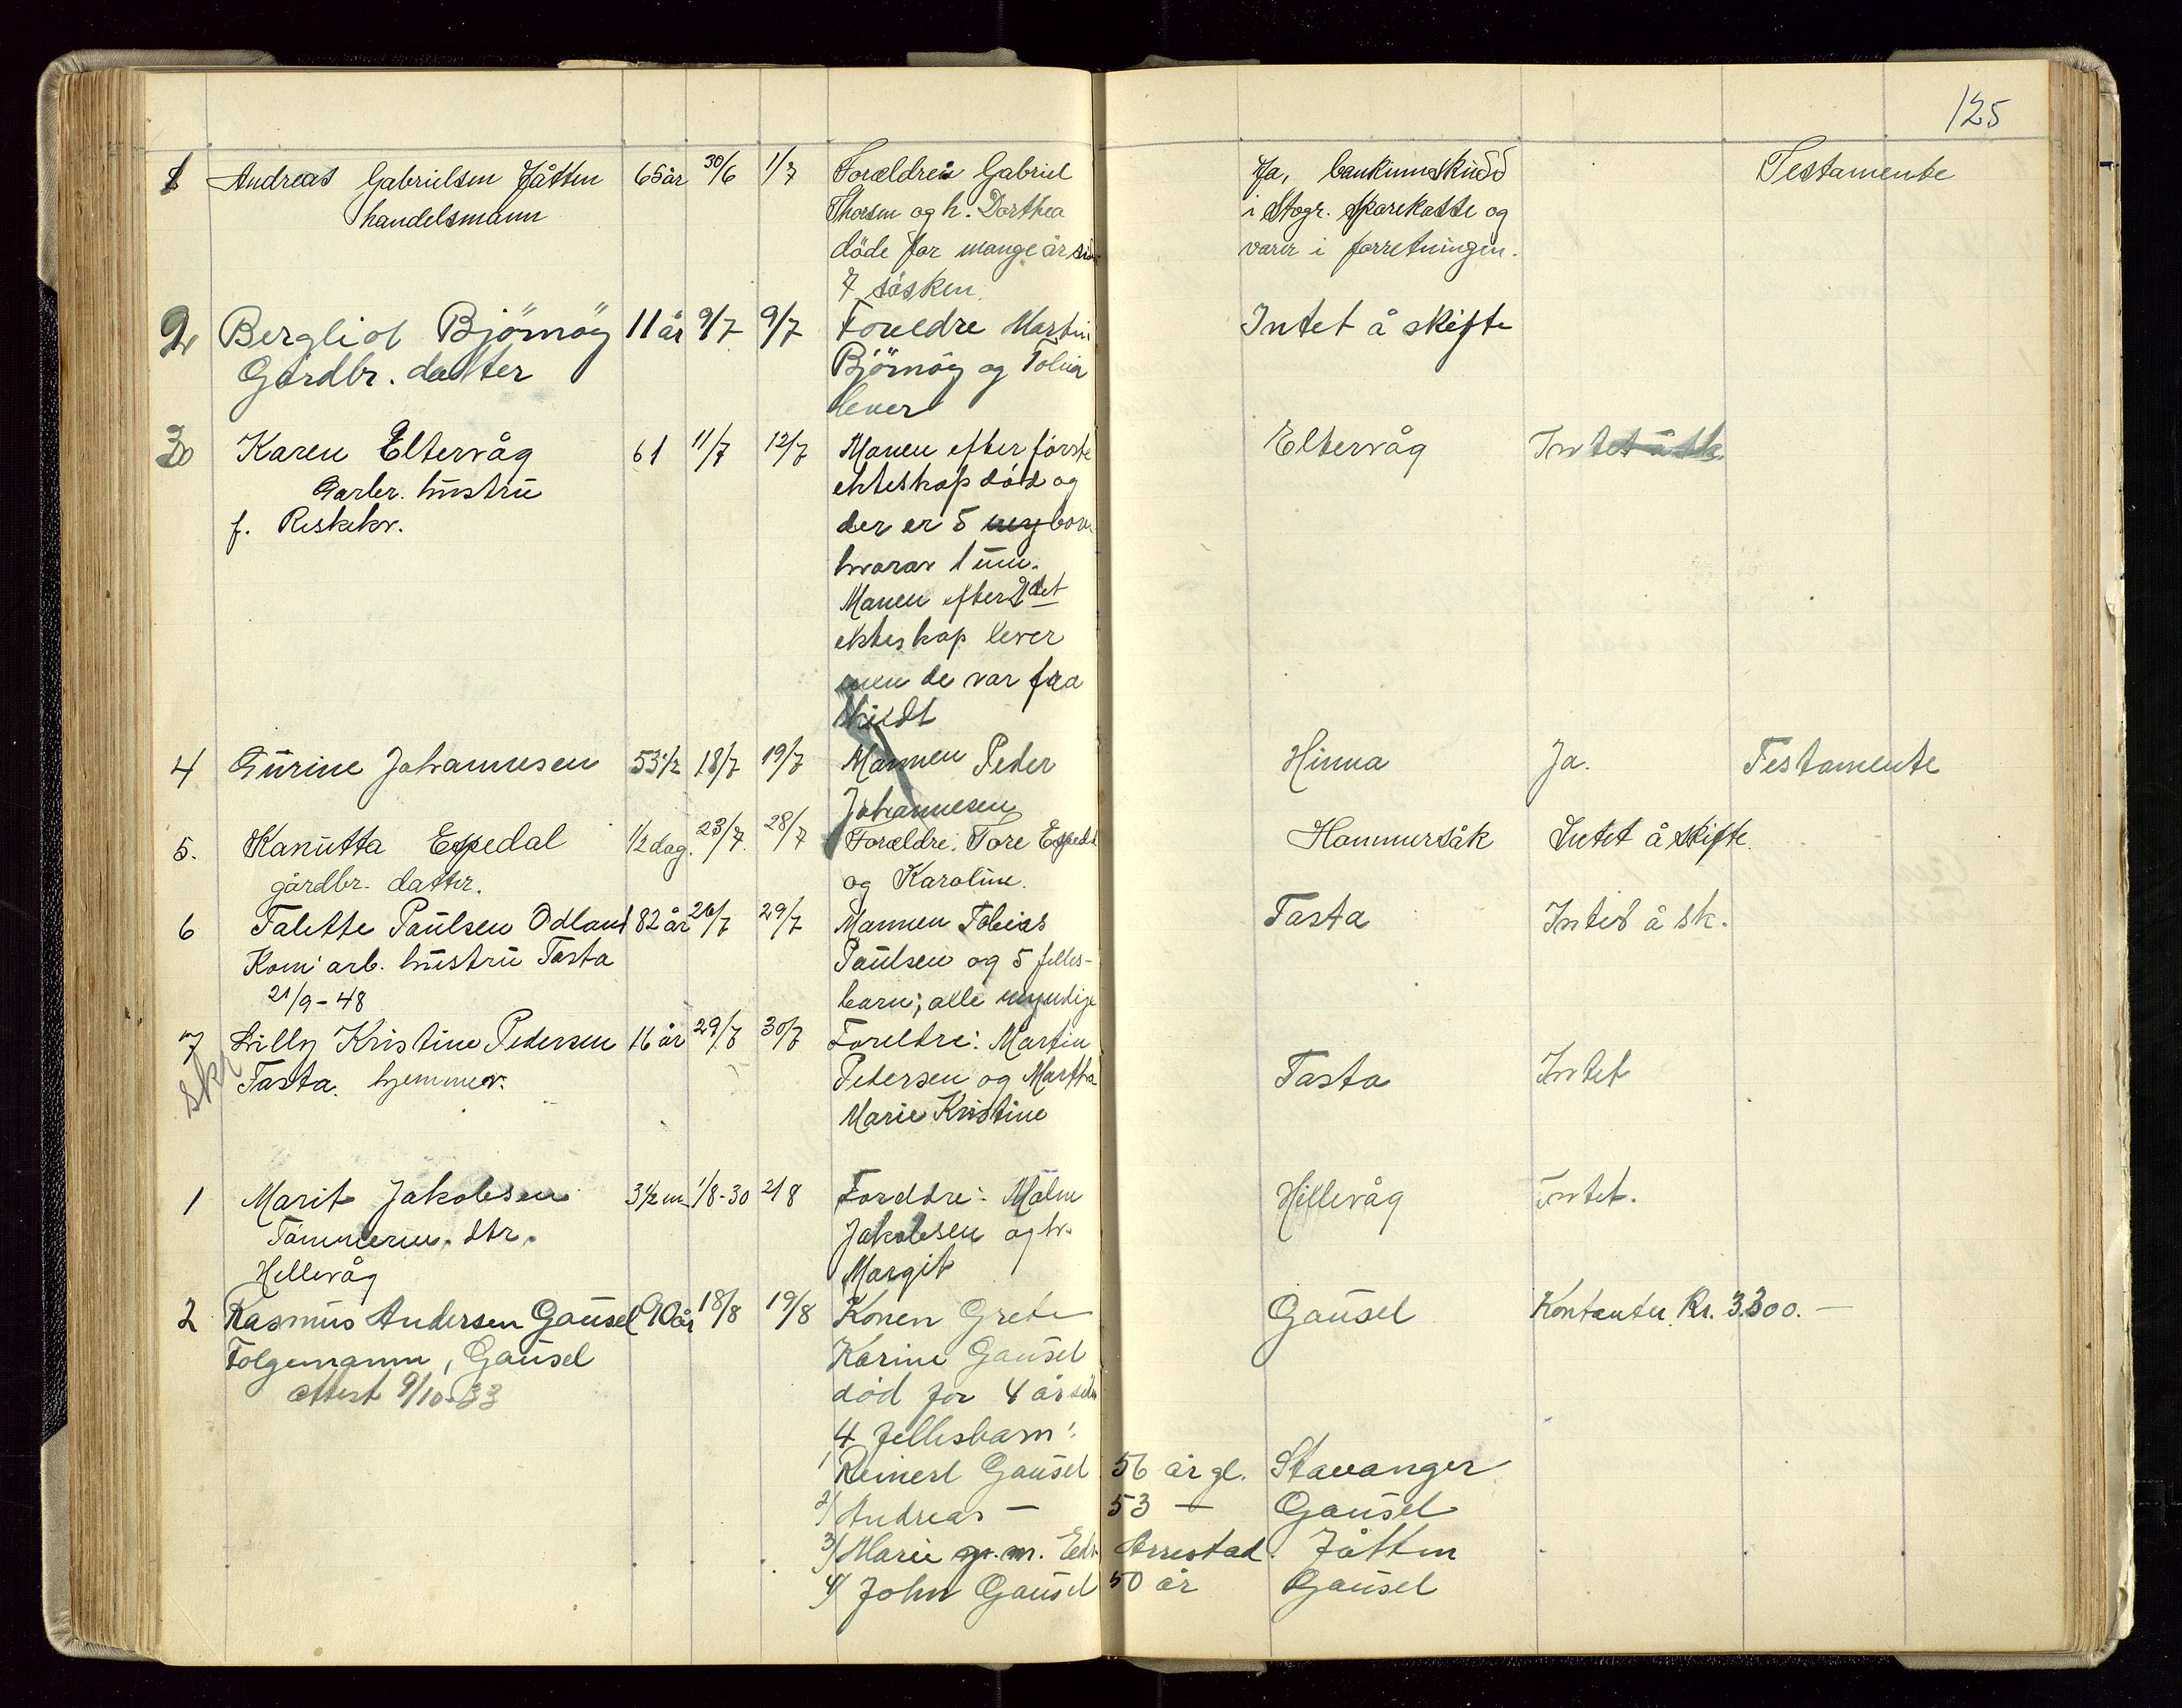 125
1 Andreas Gabrielsen Jåtten 65 år 30/6 1/7 Forældre: Gabriel Ja, bankinnskudd Testamente
handelsmann Thorsen og h. Dorthea i Stvgr. Sparekasse og
döde for mange år siden varer i forretningen.
7 søsken.
2 Bergliot Björnöy 11 år 9/7 9/7 Foreldre Martin Intet å skifte
Gårdbr. datter Björnöy og Tolina
lever
3 Karen Eltervåg 61 11/7 12/7 Manen efter förste Eltervåg Intet å sk.
Garbr. hustru ekteskap död og
f. Riskekv. der er 5 myg barn
hvorav 1 um.
Manen efter 2det
ekteskap lever
men de var fra
skildt
4 Gurine Johannesen 53 1/2 18/7 19/7 Mannen Peder Hinna Ja. Testamente
Johannesen
5. Kanutta Espedal 1/2 dag. 23/7. 28/7 Forældre: Tore Espedal Hommersåk Intet å skifte.
gårdbr. datter. og Karoline.
6 Talette Paulsen Odland 82 år 26/7 29/7 Mannen Tobias Tasta Intet å sk.
Kom. arb. hustru Tasta Paulsen og 5 felles-
21/9-48 barn; alle myndige
7 Lilly Kristine Pedersen 16 år 29/7 30/7 Foreldre: Martin
Skr Tasta. hjemmev. Petersen og Martha Tasta Intet
Marie Kristine
1 Marit Jakobsen 3 1/2 m 1/8-30 2/8 Foreldre: Malm Hillevåg Intet.
Tömmerm. dtr. Jakobsen og h.
Hillevåg Margit
2 Rasmus Andersen Gausel 90 år 18/8 19/8 Konen Grete Gausel Kontanter Kr. 3300.—
Folgemann, Gausel Karine Gausel
Attest 9/10-33 död for 4 år siden
4 fellesbarn:
1/ Reinert Gausel 56 år gl. Stavanger
2/ Andreas — 53 — Gausel
3/ Marie g. m. Edv. Arrestad. Jåtten
4/ John Gausel 50 år Gausel